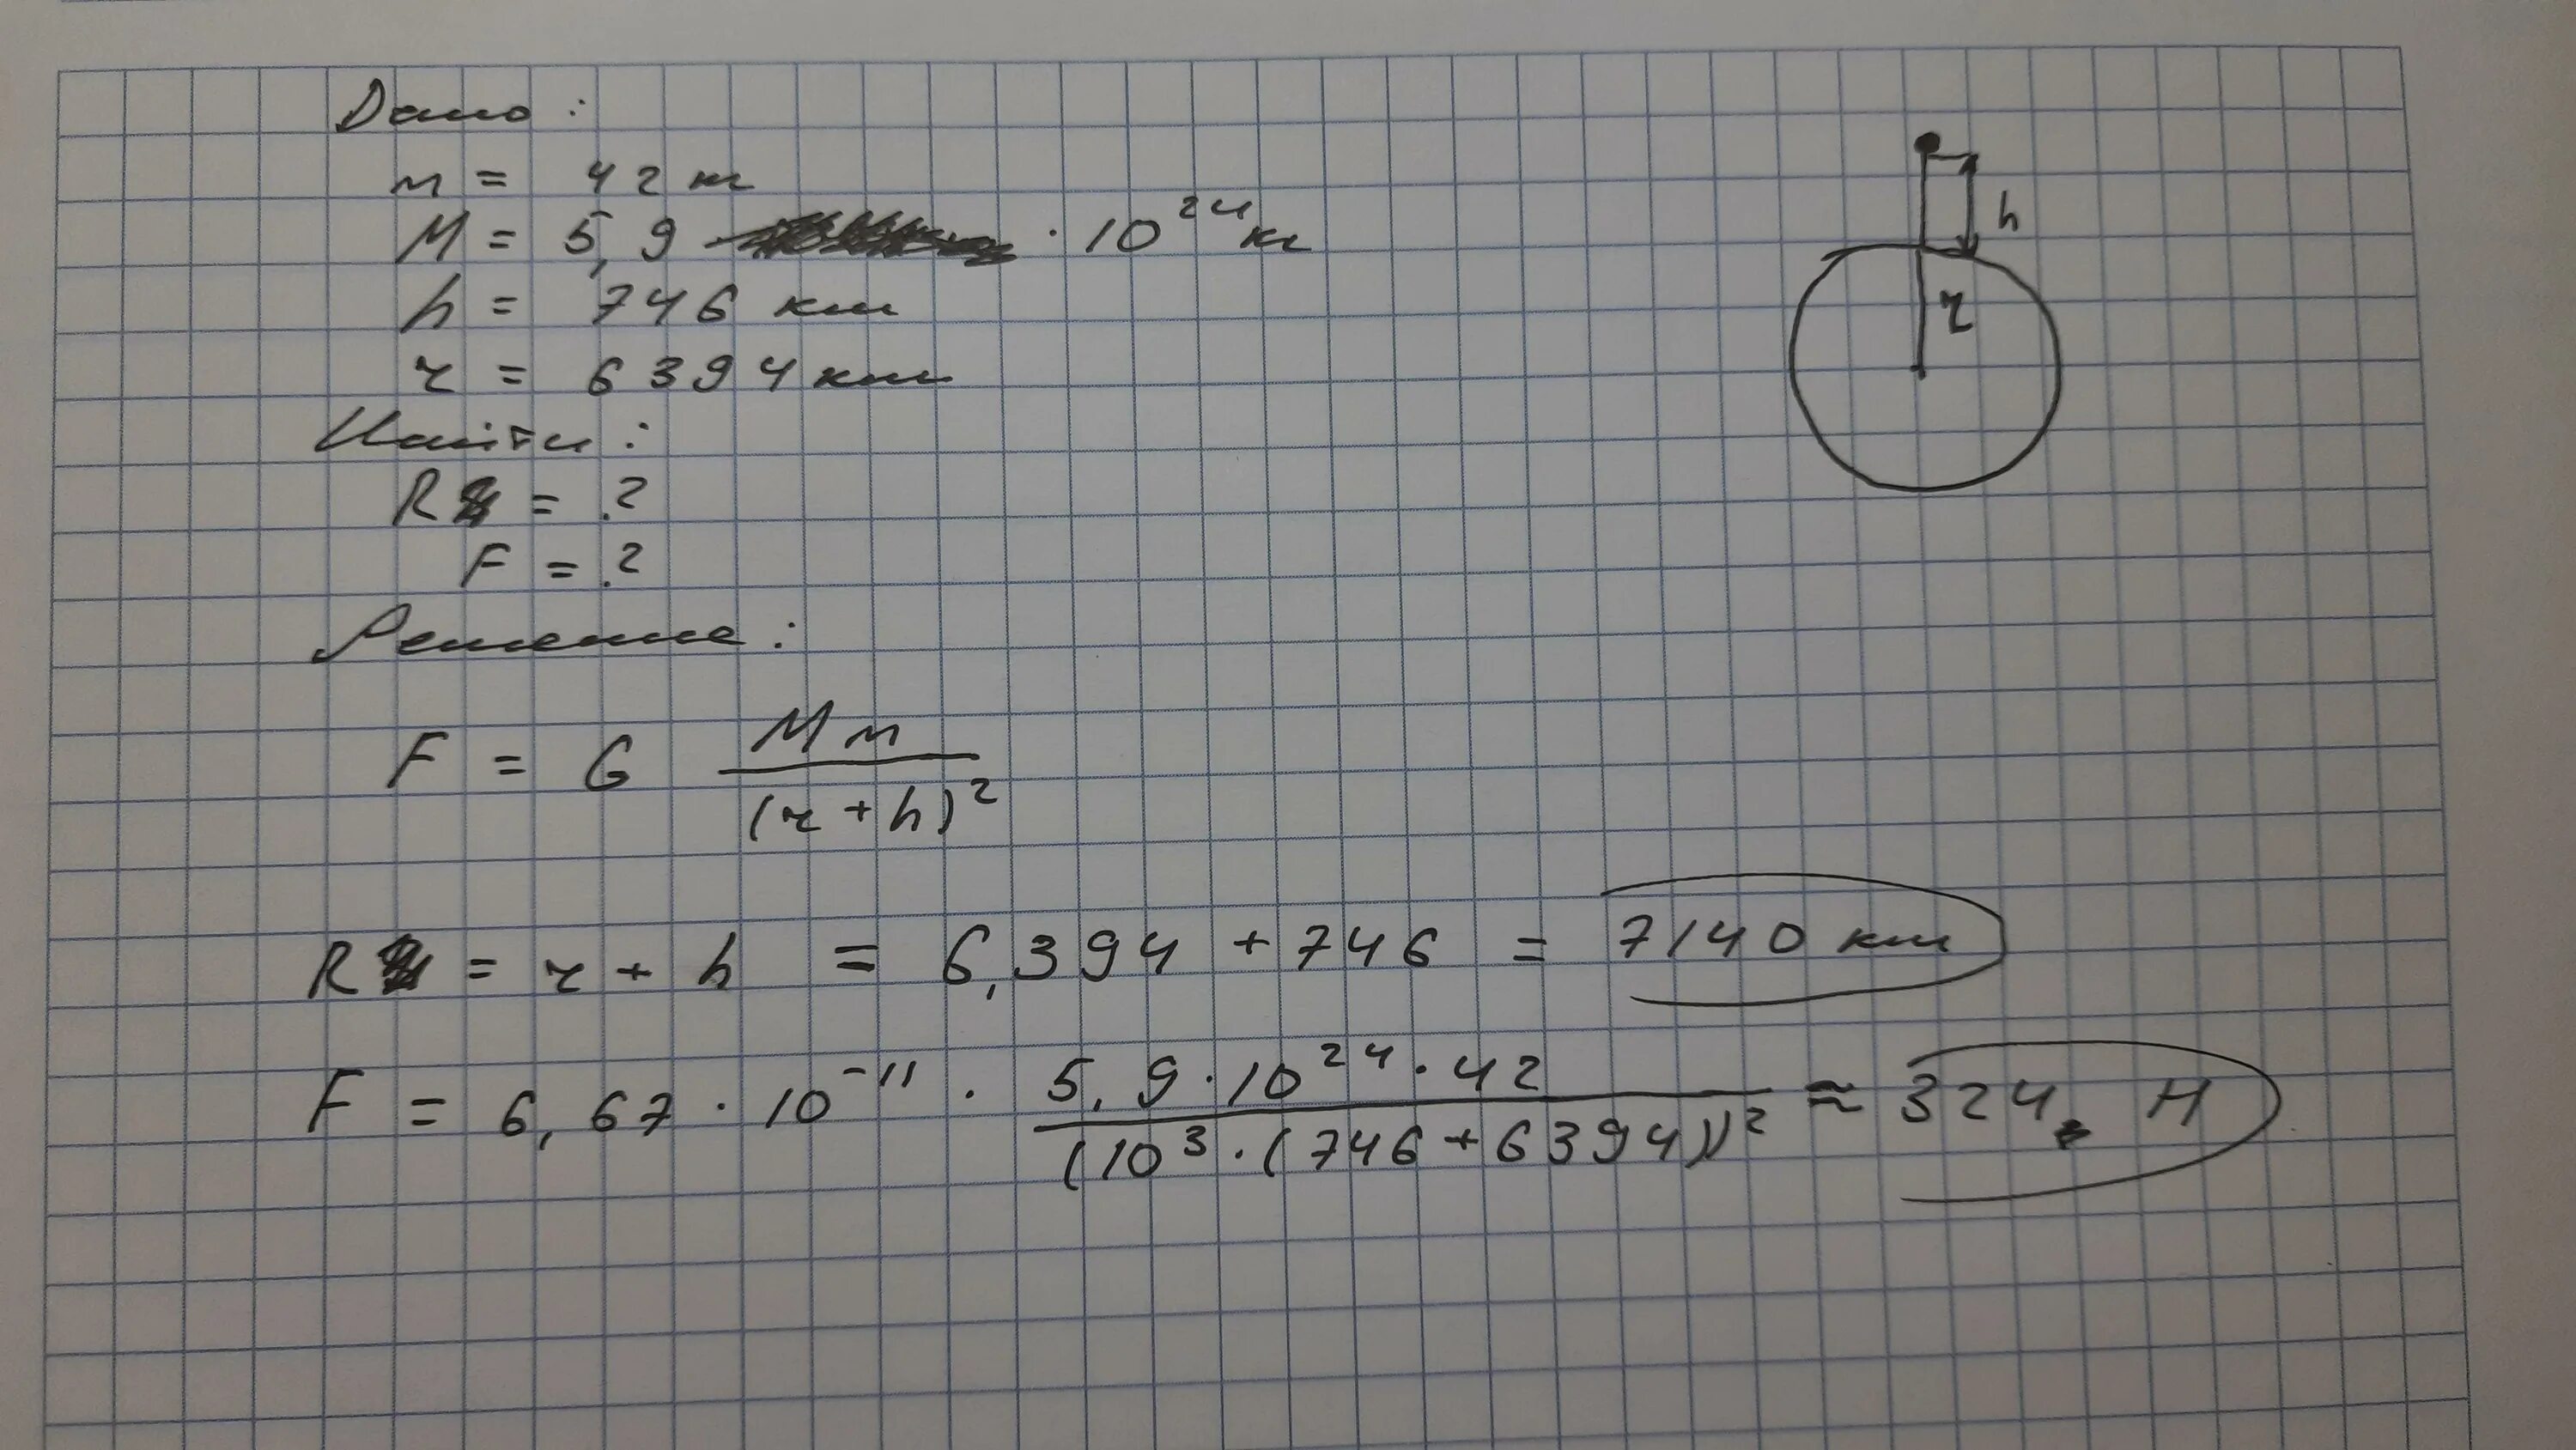 Дано:
m = 42 кг
M = 5,9 · 10²⁴ кг
h = 746 км
r = 6394 км
h
r
Найти:
R = ?
F = ?
Решение:
F = G Mm / (r + h)²
R = r + h = 6,394 + 746 = 7140 км
F = 6,67 · 10⁻¹¹ · 5,9 · 10²⁴ · 42 / (10³ · (746 + 6394))² ≈ 324 Н